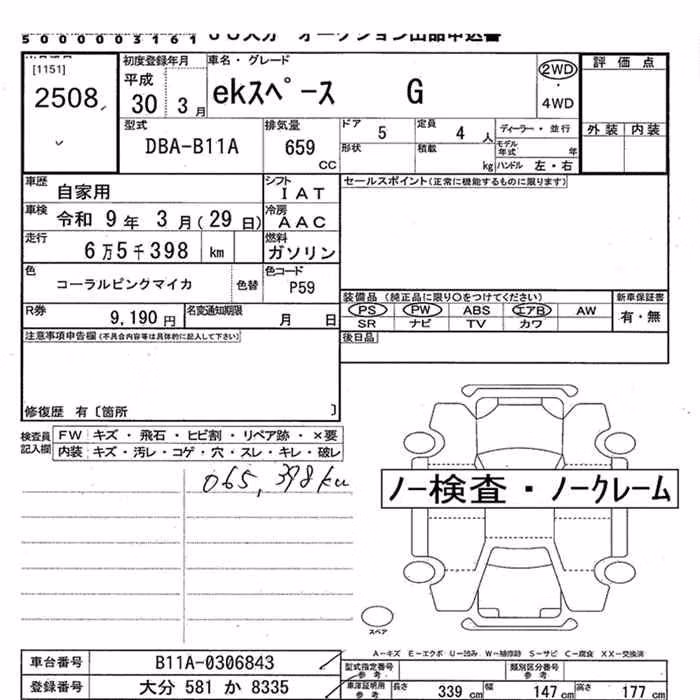 5000003161 JU大分 オークション出品申込書
[1151]
2508
初度登録年月 車名・グレード
平成 30 3月 ekスペース G 2WD・4WD
評価点
外装 内装
型式 排気量 ドア 5 定員 4人 ディーラー・並行
DBA-B11A 659 CC 形状 積載 kg モデル年式 年
ハンドル 左・右
車歴 自家用 シフト IAT セールスポイント(正常に機能するものに限ります)
車検 令和 9年 3月(29日) 冷房 AAC
走行 6万5千398 km 燃料 ガソリン
色 コーラルピンクマイカ 色替 色コード P59
装備品 (純正品に限り○をつけてください) 新車保証書
PS PW ABS エアB AW 有・無
SR ナビ TV カワ
R券 9,190円 名変通知期限 月 日
後日品
注意事項申告欄(不具合内容等は具体的に記入して下さい)
修復歴 有〔箇所 〕
検査員記入欄 FW キズ・飛石・ヒビ割・リペア跡・×要
内装 キズ・汚レ・コゲ・穴・スレ・キレ・破レ
065,398km
ノー検査・ノークレーム
スペア
A-キズ E-エクボ U-凹み W-補修跡 S-サビ C-腐食 XX-交換済
車台番号 B11A-0306843 型式指定番号 参考 類別区分番号 参考
登録番号 大分 581 か 8335 車庫証明用 参考 長さ 339 cm 幅 147 cm 高さ 177 cm